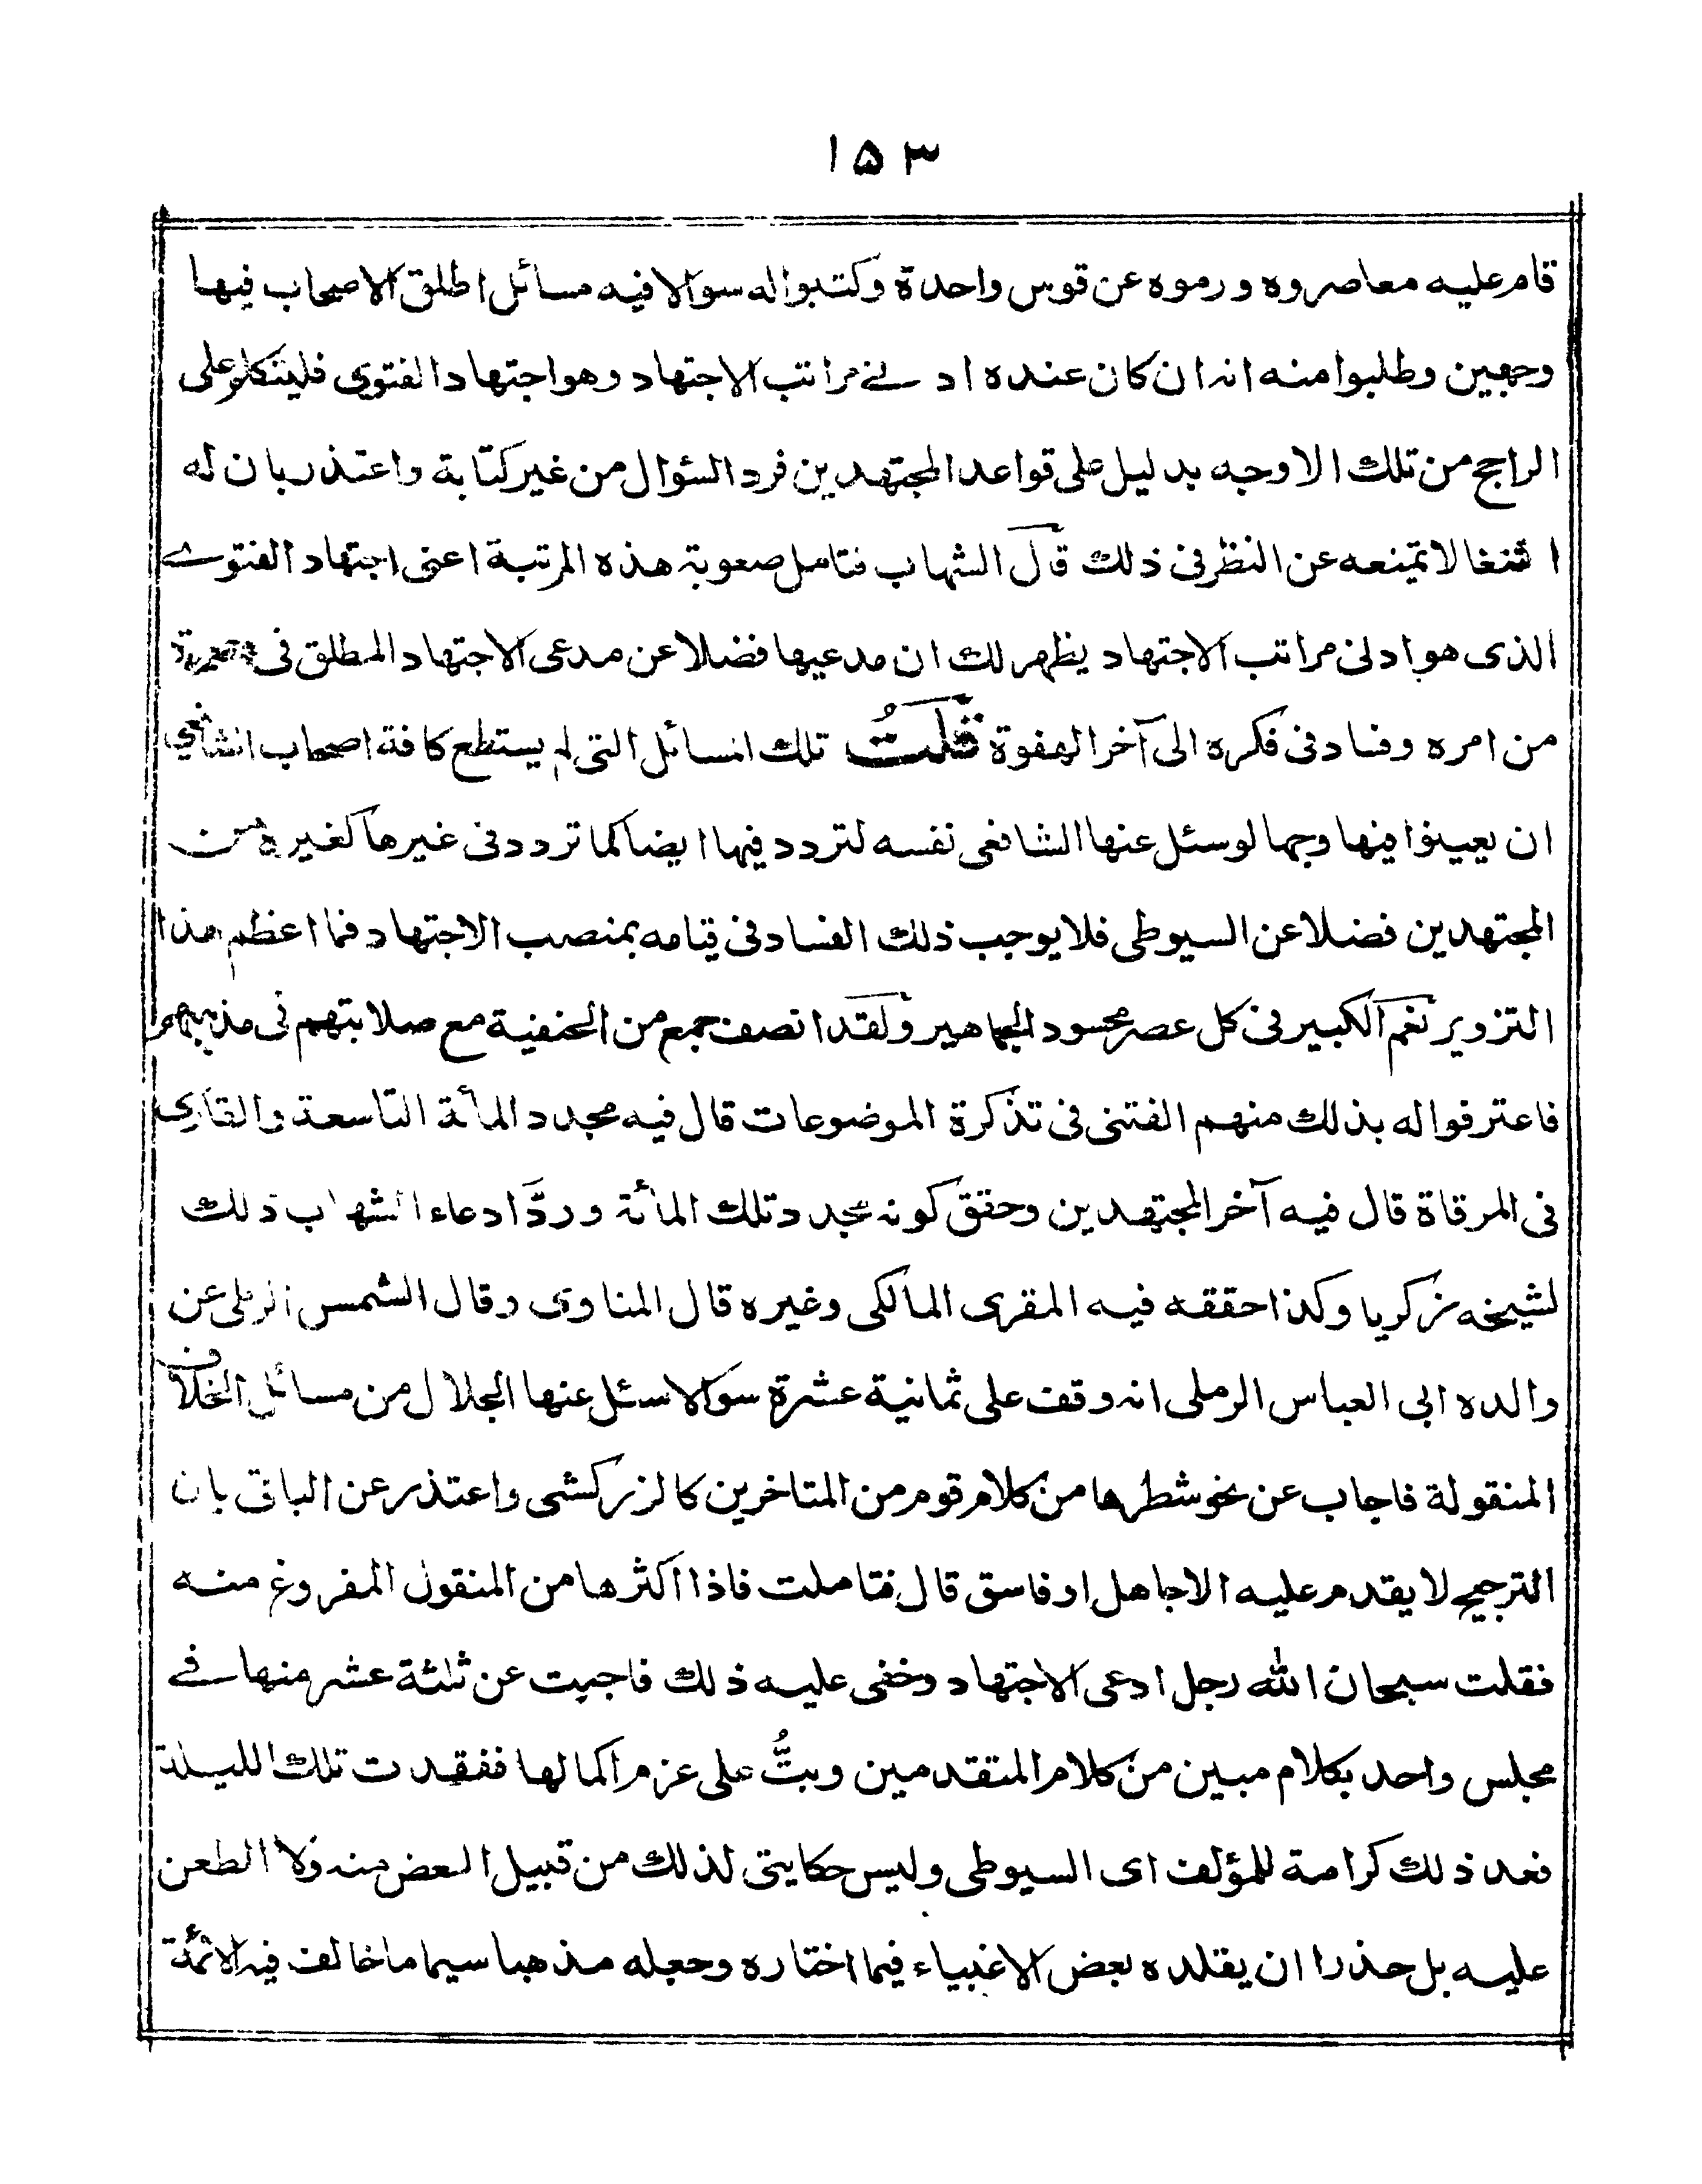 ١٥٣
قام عليه معاصروه ورموه عن قوس واحدة وكتبوا له سوالا فيه مسائل اطلق الاصحاب فيها
وجهين وطلبوا منه انه ان كان عنده ادنے مراتب الاجتهاد وهو اجتهاد الفتوى فليتكلم على
الراجح من تلك الاوجه بدليل على قواعد المجتهدين فرد السؤال من غير كتابة واعتذر بان له
اشتغالا تمنعه عن النظر فى ذلك قال الشهاب فتامل صعوبة هذه المرتبة اعنى اجتهاد الفتوے
الذى هو ادنى مراتب الاجتهاد يظهر لك ان مدعيها فضلا عن مدعى الاجتهاد المطلق فى
من امره وفساد فى فكره الى آخر الهفوة قلت تلك المسائل التى لم يستطع كافة اصحاب الشافعي
ان يعينوا فيها وجها لو سئل عنها الشافعى نفسه لتردد فيها ايضا كما تردد فى غيرها كغيره من
المجتهدين فضلا عن السيوطى فلا يوجب ذلك الفساد فى قيامه بمنصب الاجتهاد فما اعظم هذا
التزوير نعم الكبير فى كل عصر محسود الجماهير ولقد انصف جمع من الحنفية مع صلابتهم فى مذهبهم
فاعترفوا له بذلك منهم الفتنى فى تذكرة الموضوعات قال فيه مجدد المائة التاسعة والقارى
فى المرقاة قال فيه آخر المجتهدين وحقق كونه مجدد تلك المائة وردَّ ادعاء الشهاب ذلك
لشيخه زكريا وكذا حققه فيه المقرى المالكى وغيره قال المناوى وقال الشمس الرملى عن
والده ابى العباس الرملى انه وقف على ثمانية عشرة سوالا سئل عنها الجلال من مسائل الخلاف
المنقولة فاجاب عن نحو شطرها من كلام قوم من المتاخرين كالزركشى واعتذر عن الباقى بان
الترجيح لا يقدم عليه الا جاهل او فاسق قال فتاملت فاذا اكثرها من المنقول المفروغ منه
فقلت سبحان الله رجل ادعى الاجتهاد وخفى عليه ذلك فاجبت عن ثلثة عشر منها فے
مجلس واحد بكلام مبين من كلام المتقدمين وبتُّ على عزم اكمالها ففقدت تلك الليلة
فعد ذلك كرامة للمؤلف اى السيوطى وليس حكايتى لذلك من قبيل الغض منه ولا الطعن
عليه بل حذرا ان يقلده بعض الاغبياء فيما اختاره وجعله مذهبا سيما ما خالف فيه الائمة